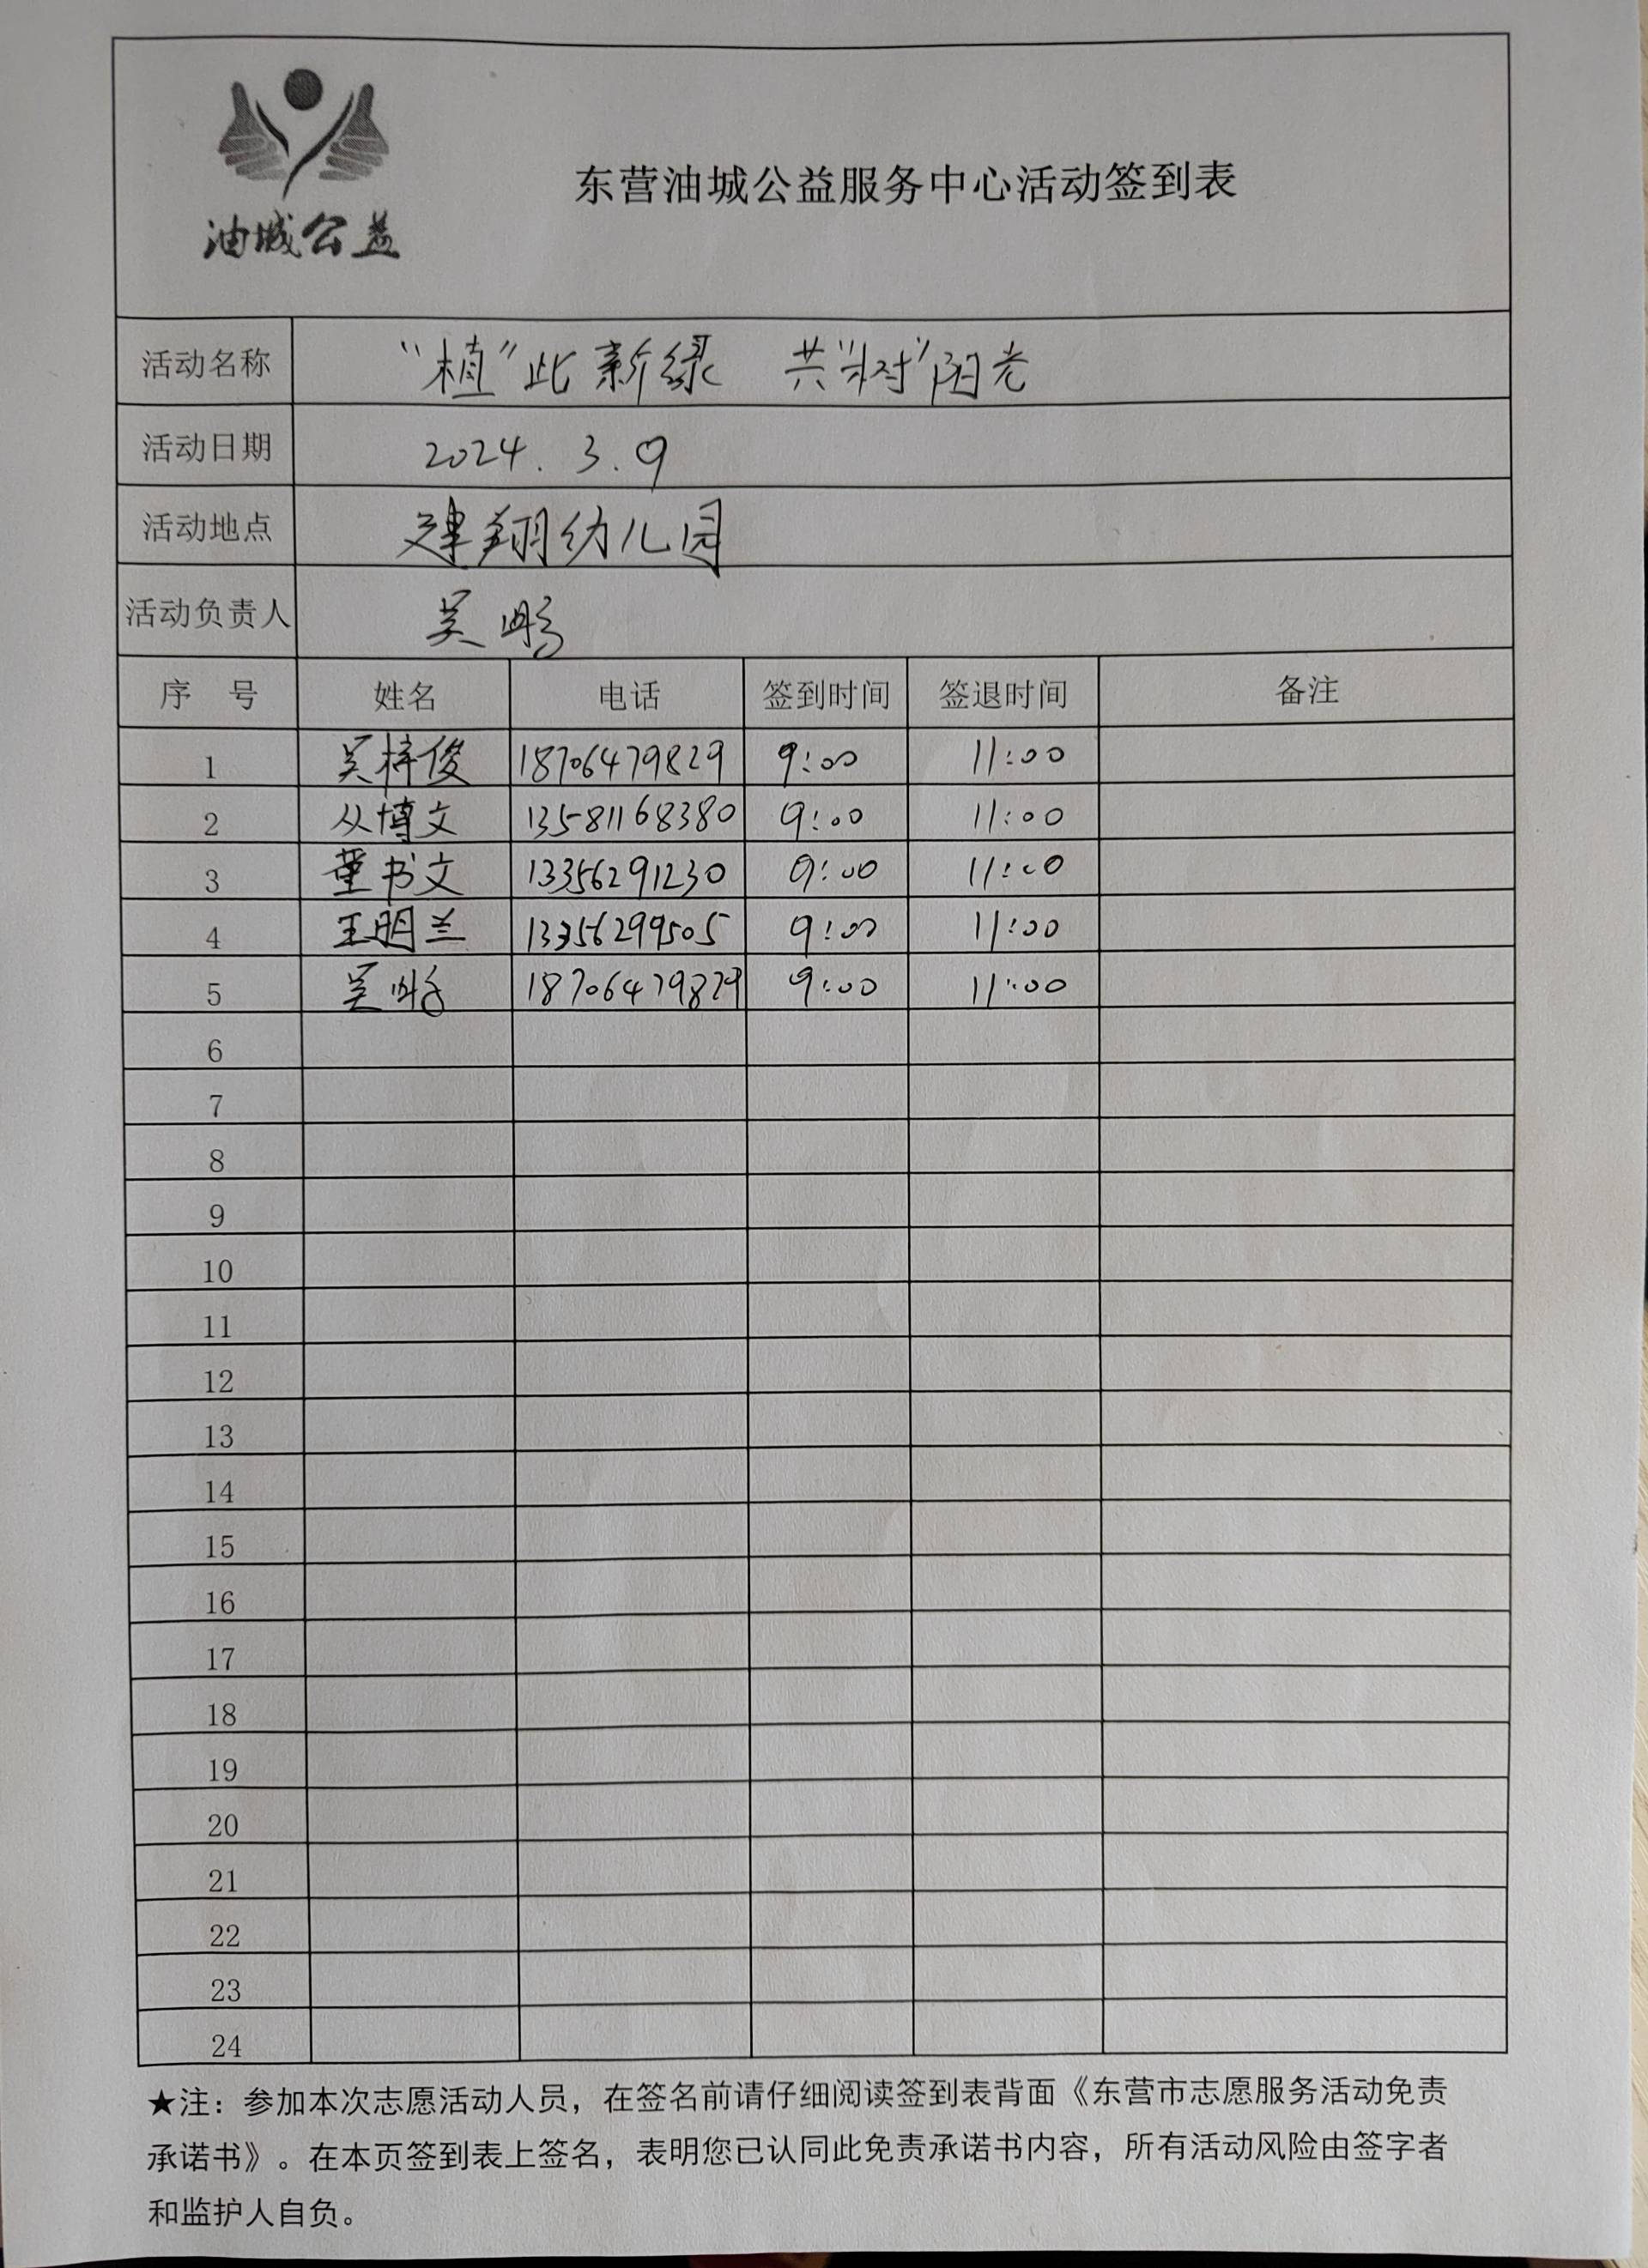 油城公益
东营油城公益服务中心活动签到表
活动名称 “植”此新绿 共“树”阳光
活动日期 2024.3.9
活动地点 建翔幼儿园
活动负责人 吴鹏
序 号 姓名 电话 签到时间 签退时间 备注
1 吴梓俊 18706479829 9:00 11:00
2 从博文 13581168380 9:00 11:00
3 董书文 13356291230 9:00 11:00
4 王明兰 13356299505 9:00 11:00
5 吴鹏 18706479829 9:00 11:00
6
7
8
9
10
11
12
13
14
15
16
17
18
19
20
21
22
23
24
★注：参加本次志愿活动人员，在签名前请仔细阅读签到表背面《东营市志愿服务活动免责
承诺书》。在本页签到表上签名，表明您已认同此免责承诺书内容，所有活动风险由签字者
和监护人自负。